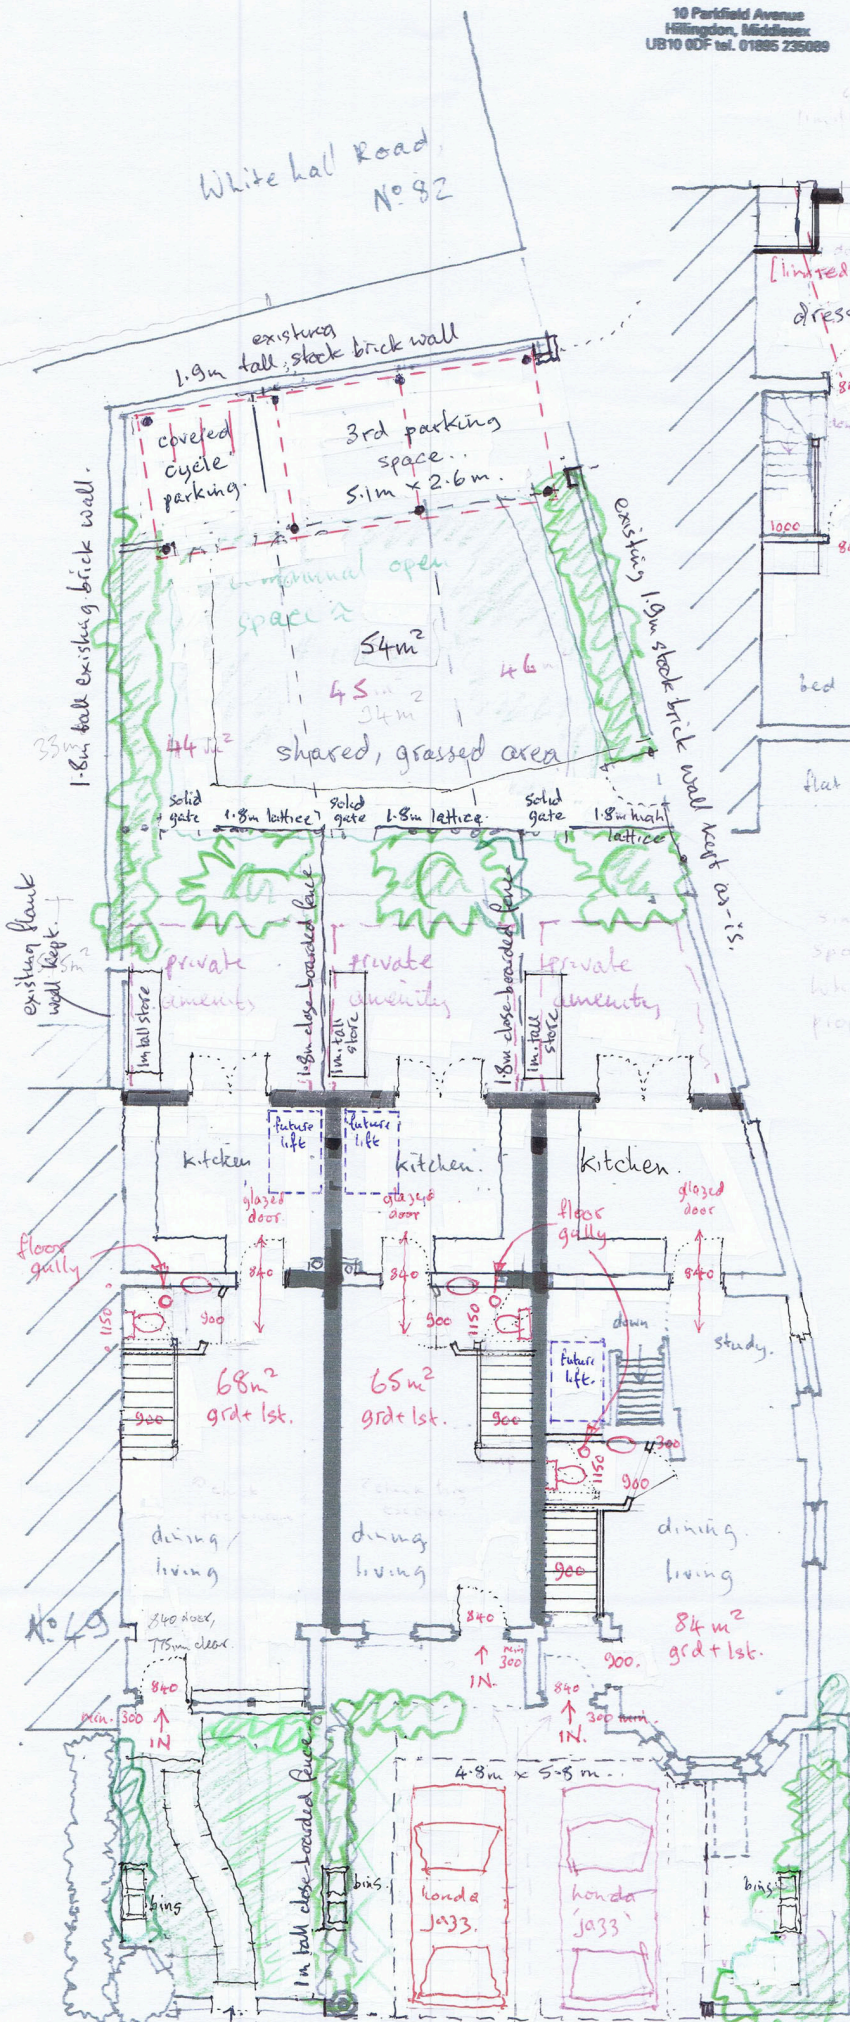 10 Parkfield Avenue
Hillingdon, Middlesex
UB10 0DF tel. 01895 235089
White hall Road,
Nº 82
[limited
existing
1.9m tall, stock brick wall
covered
cycle
parking.
3rd parking
space...
5.1m x 2.6m.
1.8m tall existing brick wall.
existing 1.9m stock brick wall kept as-is.
1000
communal open
space
54m²
45
46
44 m²
shared, grassed area
bed
flat
solid
gate
1.8m lattice
solid
gate
1.8m lattice
solid
gate
1.8m high
lattice
existing flank
wall kept.
private
amenity
private
amenity
private
amenity
1.8m close-boarded fence
1.8m close-boarded fence
1m tall store
1m tall
store
1m tall
store
future
lift
future
lift
kitchen
kitchen.
kitchen.
glazed
door
glazed
door
glazed
door
floor
gully
floor
gully
840
840
840
1150
900
900
1150
down
study.
68m²
grd + 1st.
65m²
grd + 1st.
future
lift.
900
900
300
1150
900
dining,
living
dining,
living
dining.
living
900
Nº 49
840 door,
775mm clear.
84m²
grd + 1st.
840
min. 300
IN
840
min
300
IN.
900.
840
300 min.
IN.
4.8m x 5.8m...
1m tall close-boarded fence
bins
bins
bins
honda
jazz.
honda
jazz